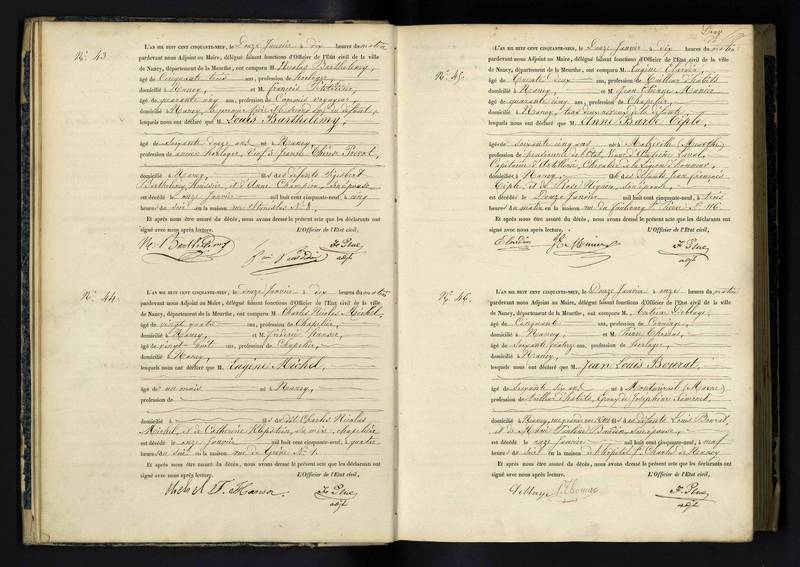 N.º 43.
L'AN MIL HUIT CENT CINQUANTE-NEUF, le Douze Janvier à dix heures du matin
pardevant nous Adjoint au Maire, délégué faisant fonctions d'Officier de l'Etat civil de la ville
de Nancy, département de la Meurthe, ont comparu M. Nicolas Barthélemy,
âgé de Cinquante trois ans, profession de horloger,
domicilié à Nancy, et M. François
âgé de quarante ans, profession de Commis voyageur
domicilié à Nancy, le premier fils et le second du défunt,
lesquels nous ont déclaré que M. Louis Barthélemy,
âgé de Soixante douze ans né à Nancy,
profession de ancien horloger, Veuf de Thérèse
domicilié à Nancy, fils de défunts
Barthélemy, Huissier, et d'Anne Champion, son épouse
est décédé le Douze Janvier mil huit cent cinquante-neuf, à cinq
heures du soir en la maison rue Stanislas N.º
Et après nous être assuré du décès, nous avons dressé le présent acte que les déclarants ont
signé avec nous après lecture. L'Officier de l'Etat civil,
N. Barthélemy
adj.t
N.º 44.
L'AN MIL HUIT CENT CINQUANTE-NEUF, le douze Janvier à dix heures du matin
pardevant nous Adjoint au Maire, délégué faisant fonctions d'Officier de l'Etat civil de la ville
de Nancy, département de la Meurthe, ont comparu M. Charles Nicolas Michel,
âgé de vingt quatre ans, profession de Chapelier,
domicilié à Nancy, et M. Frédéric
âgé de vingt-huit ans, profession de Chapelier,
domicilié à Nancy,
lesquels nous ont déclaré que M. Eugène Michel,
âgé d'un mois né à Nancy,
profession de
domicilié à fils de dit Charles Nicolas
Michel, et de Catherine sa mère, chapelière
est décédé le onze Janvier mil huit cent cinquante-neuf, à quatre
heures du soir en la maison rue de N.º 1.
Et après nous être assuré du décès, nous avons dressé le présent acte que les déclarants ont
signé avec nous après lecture. L'Officier de l'Etat civil,
Michel F.
adj.t
N.º 45.
L'AN MIL HUIT CENT CINQUANTE-NEUF, le Douze Janvier à dix heures du matin
pardevant nous Adjoint au Maire, délégué faisant fonctions d'Officier de l'Etat civil de la ville
de Nancy, département de la Meurthe, ont comparu M. Eugène Claudin,
âgé de Trente deux ans, profession de Tailleur d'habits
domicilié à Nancy, et M. Jean Etienne Munier
âgé de quarante cinq ans, profession de Chapelier,
domicilié à Nancy, tous deux neveux de la défunte,
lesquels nous ont déclaré que M. Anne Barbe Céple,
âgée de soixante cinq ans née à Malzéville (Meurthe)
profession de pensionnée de l'Etat, Veuve d'Antoine
Capitaine d'Artillerie, Chevalier de la Légion d'honneur,
domicilié à Nancy, fille de défunts Jean François
Céple, et de Rose son épouse,
est décédée le Douze Janvier mil huit cent cinquante-neuf, à trois
heures du matin en la maison rue du faubourg St. Pierre N.º 116.
Et après nous être assuré du décès, nous avons dressé le présent acte que les déclarants ont
signé avec nous après lecture. L'Officier de l'Etat civil,
Claudin Munier
adj.t
N.º 46.
L'AN MIL HUIT CENT CINQUANTE-NEUF, le Douze Janvier à onze heures du matin
pardevant nous Adjoint au Maire, délégué faisant fonctions d'Officier de l'Etat civil de la ville
de Nancy, département de la Meurthe, ont comparu M. Antoine Deblaye,
âgé de Cinquante ans, profession de
domicilié à Nancy, et M. Pierre Thomas,
âgé de Soixante quatorze ans, profession de horloger,
domicilié à Nancy,
lesquels nous ont déclaré que M. Jean Louis Bourat,
âgé de soixante six ans né à Montmirail (Marne)
profession de tailleur d'habits, Epoux de Joséphine
domicilié à Nancy, fils de défunts Louis Bourat,
et de Marie son épouse,
est décédé le onze Janvier mil huit cent cinquante-neuf, à neuf
heures du soir en la maison de l'hôpital St. Charles de Nancy
Et après nous être assuré du décès, nous avons dressé le présent acte que les déclarants ont
signé avec nous après lecture. L'Officier de l'Etat civil,
Deblaye P. Thomas
adj.t